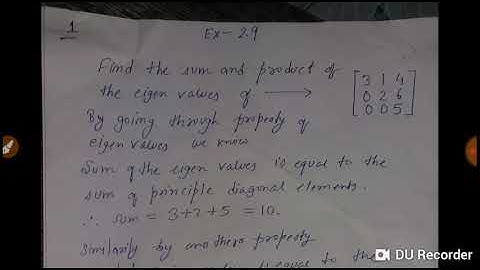 1
Ex- 2.9
Find the sum and product of
the eigen values of → [3 1 4
0 2 6
0 0 5]
By going through property of
eigen values we know
Sum of the eigen values is equal to the
sum of principle diagonal elements.
∴ sum = 3+2+5 = 10.
Similarly by another property
equal to the
DU Recorder